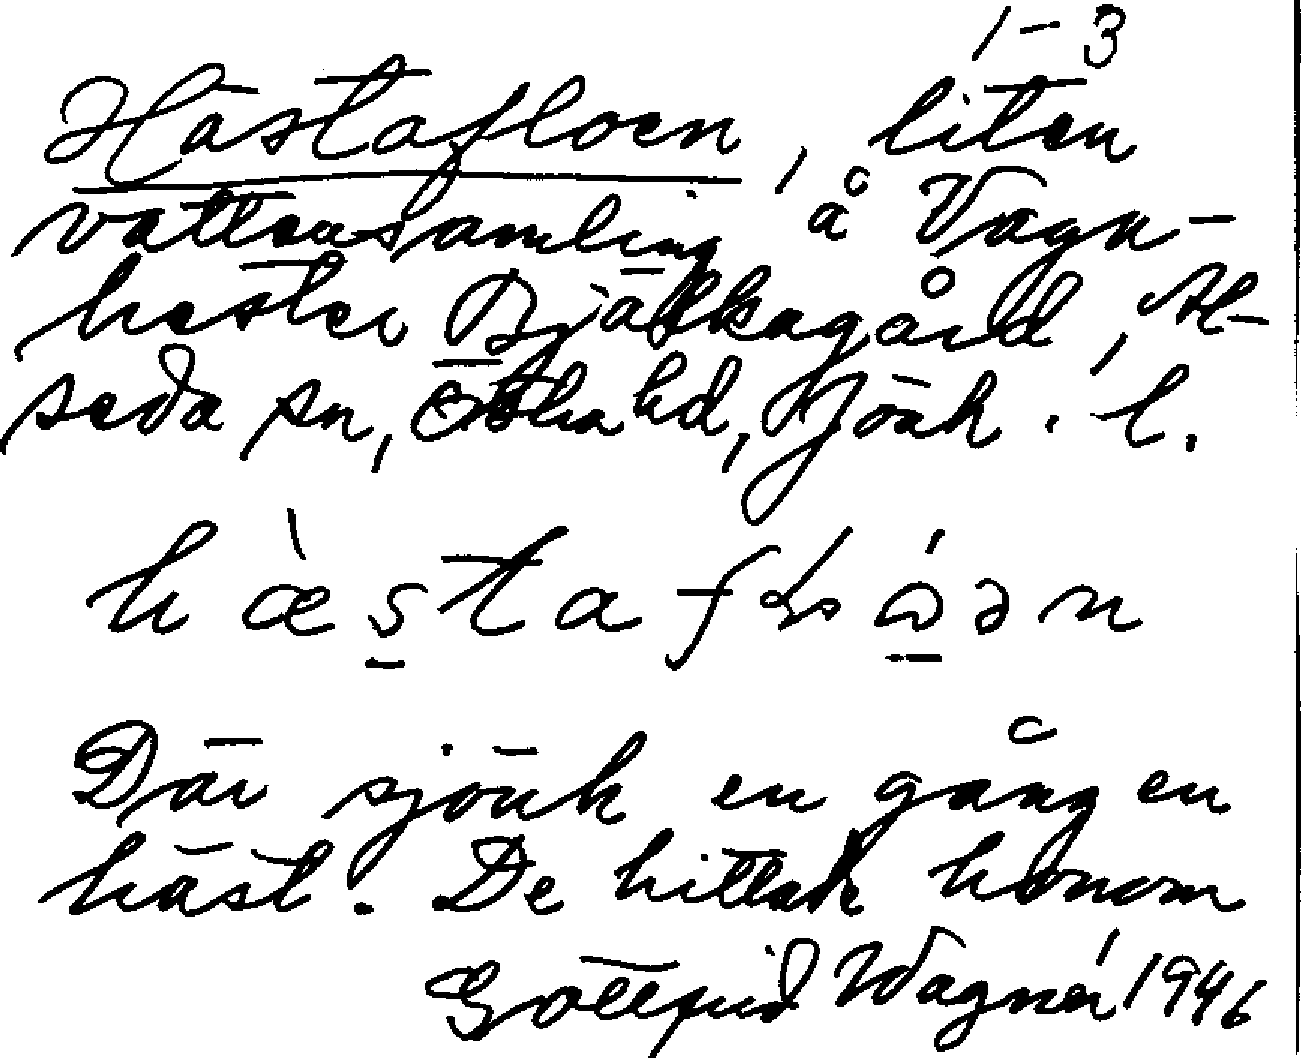 1-3
Hästafloen, liten
vattensamling å Vagn-
hester Bjälkagård, Al-
seda sn, Östra hd, Jönk. l.
Där sjönk en gång en
häst. De hittade honom
Gottfrid Wagnér 1946